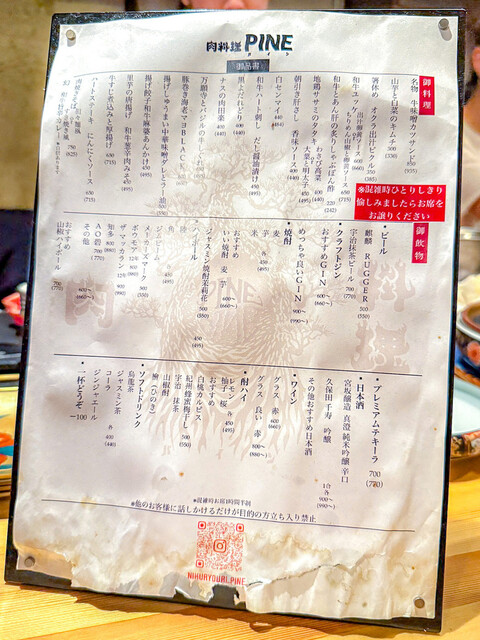 肉料理 PINE
御料理
名物 牛味噌カツサンド 900(990)
山芋と白菜のキムチ 300(330)
箸休め オクラ出汁ピクル 350(385)
和牛ユッケ 出汁卵黄ソース 600(660)
和牛とあん肝の炙りしゃぶぽん酢 220(242)
地鶏ササミのタタキ わさび高菜 400(440)
大葉と明太子 450(495)
朝引き肝さし 香味ソース 400(440)
白センマイ 450(495)
和牛ハート刺し だし醤油漬け 450(495)
黒よだれどり 400(440)
ナスの肉田楽 400(440)
万願寺とバジルの牛しぐれ
豚巻き海老マヨBLACK
揚げしゅうまい中華味噌タレとラー油 500(550)
揚げ餃子和牛麻婆あんかけ 450(495)
里芋の唐揚げ 和牛葱辛肉みそ 450(495)
牛すじ煮込みと厚揚げ 650(715)
ハートステーキ にんにくソース 650(715)
※混雑時ひとりしきり
愉しみましたらお席を
お譲りください
御飲物
・ビール
麒麟 RUGGER 500(550)
宇治抹茶ビール 700(770)
・クラフトジン
おすすめGIN 600(660)~
めっちゃ良いGIN 900(990)~
・焼酎
麦
芋
米 各450(495)
おすすめ
いい焼酎 麦 芋 600(660)~
ジャスミン焼酎茉莉花 500(550)
450(495)
ジムビーム 450(495)
メーカーズマーク 500(550)
ボウモア 12年 800(880)
ザ マッカラン 12年 900(990)
知多 800(880)
AO碧 700(770)
その他
600(660)~
おすすめ
山椒ハイボール 700(770)
・プレミアムテキーラ 700(770)
・日本酒
宮坂醸造 真澄 純米吟醸辛口
久保田 千寿 吟醸 1合 各900(990)~
その他おすすめ日本酒
・ワイン
グラス 赤 600(660)
グラス 良い 赤 800(880)~
・酎ハイ
レモン
柚子 桜 各450(495)
おすすめ
白桃カルピス
紀州蜂蜜梅干し
宇治 抹茶 500(550)
山椒酎
檜(ひのき)
・ソフトドリンク
烏龍茶
ジャスミン茶
コーラ
ジンジャエール 各400(440)
・一杯どうぞ -100
※混雑時お席1時間半制
※他のお客様に話しかけるだけが目的の方立ち入り禁止
NIKURYOURI.PINE